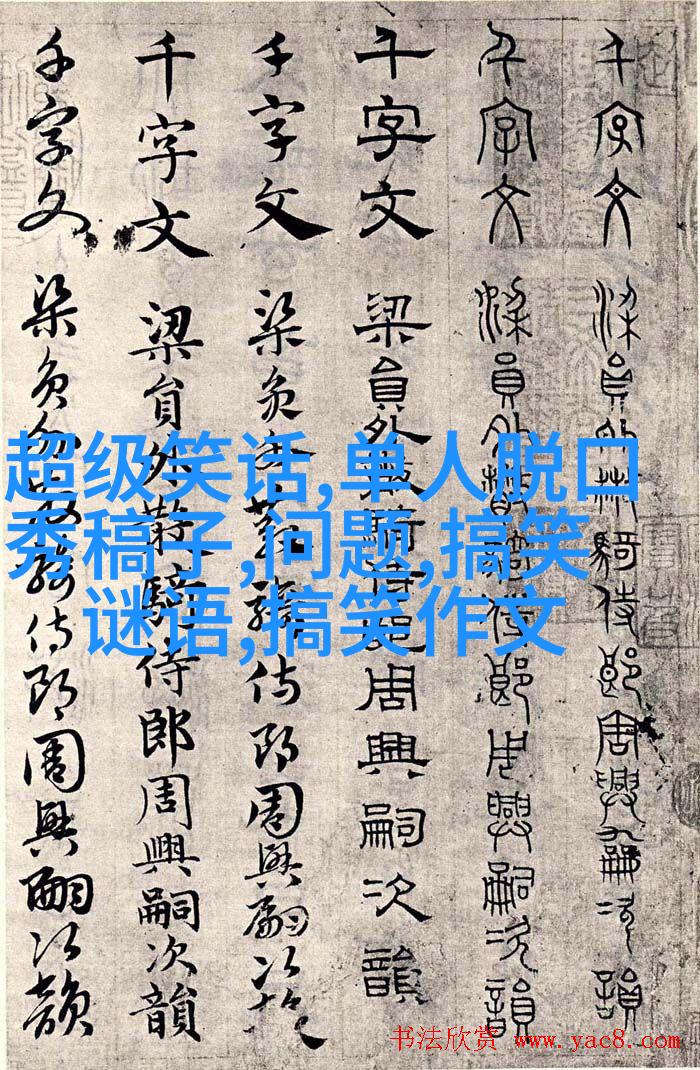 千字文 梁員外散騎侍郎周興嗣次韻
千字文 梁員外散騎侍郎周興嗣次韻
千字文 梁員外散騎侍郎周興嗣次韻
千字文 梁員外散騎侍郎周興嗣次韻
千字文 梁員外散騎侍郎周興嗣次韻
千字文 梁員外散騎侍郎周興嗣次韻
超级笑话,单人脱口
秀稿子,问题,搞笑
谜语,搞笑作文
书法欣赏 www.yac8.com